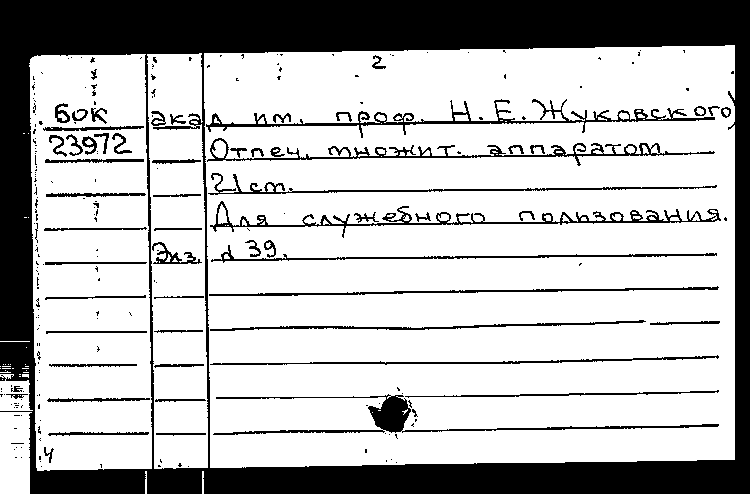 2
бок акад. им. проф. Н. Е. Жуковского)
23972 Отпеч. множит. аппаратом.
21 cm.
Для служебного пользования.
Экз. № 39.
4